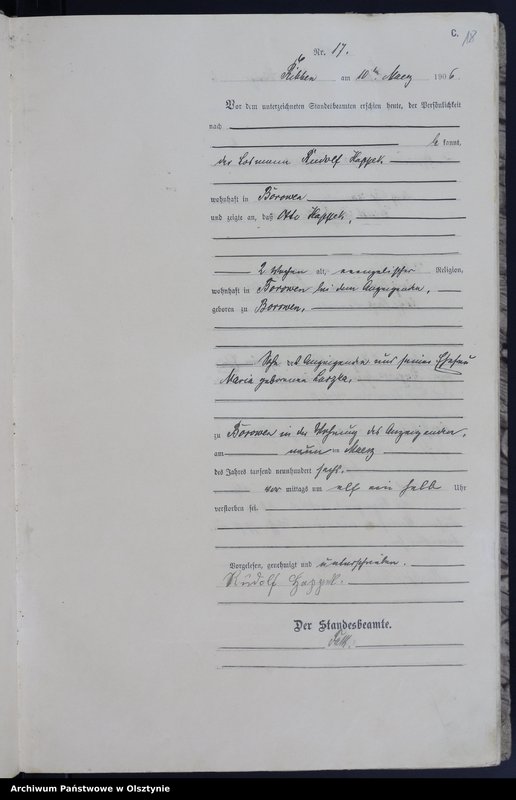 C.
18
Nr. 17.
Ribben am 10ten Maerz 1906.
Vor dem unterzeichneten Standesbeamten erschien heute, der Persönlichkeit
nach
be kannt,
der Losmann Rudolf Kappek
wohnhaft in Borowen
und zeigte an, daß Otto Kappek,
2 Wochen alt, evangelischer Religion,
wohnhaft in Borowen bei dem Anzeigenden,
geboren zu Borowen,
Sohn des Anzeigenden und seiner Ehefrau
Maria geborenen
zu Borowen in der Wohnung des Anzeigenden,
am neun ten Maerz
des Jahres tausend neunhundert sechs
vor mittags um elf ein halb Uhr
verstorben sei.
Vorgelesen, genehmigt und unterschrieben.
Rudolf Happek.
Der Standesbeamte.
Archiwum Państwowe w Olsztynie